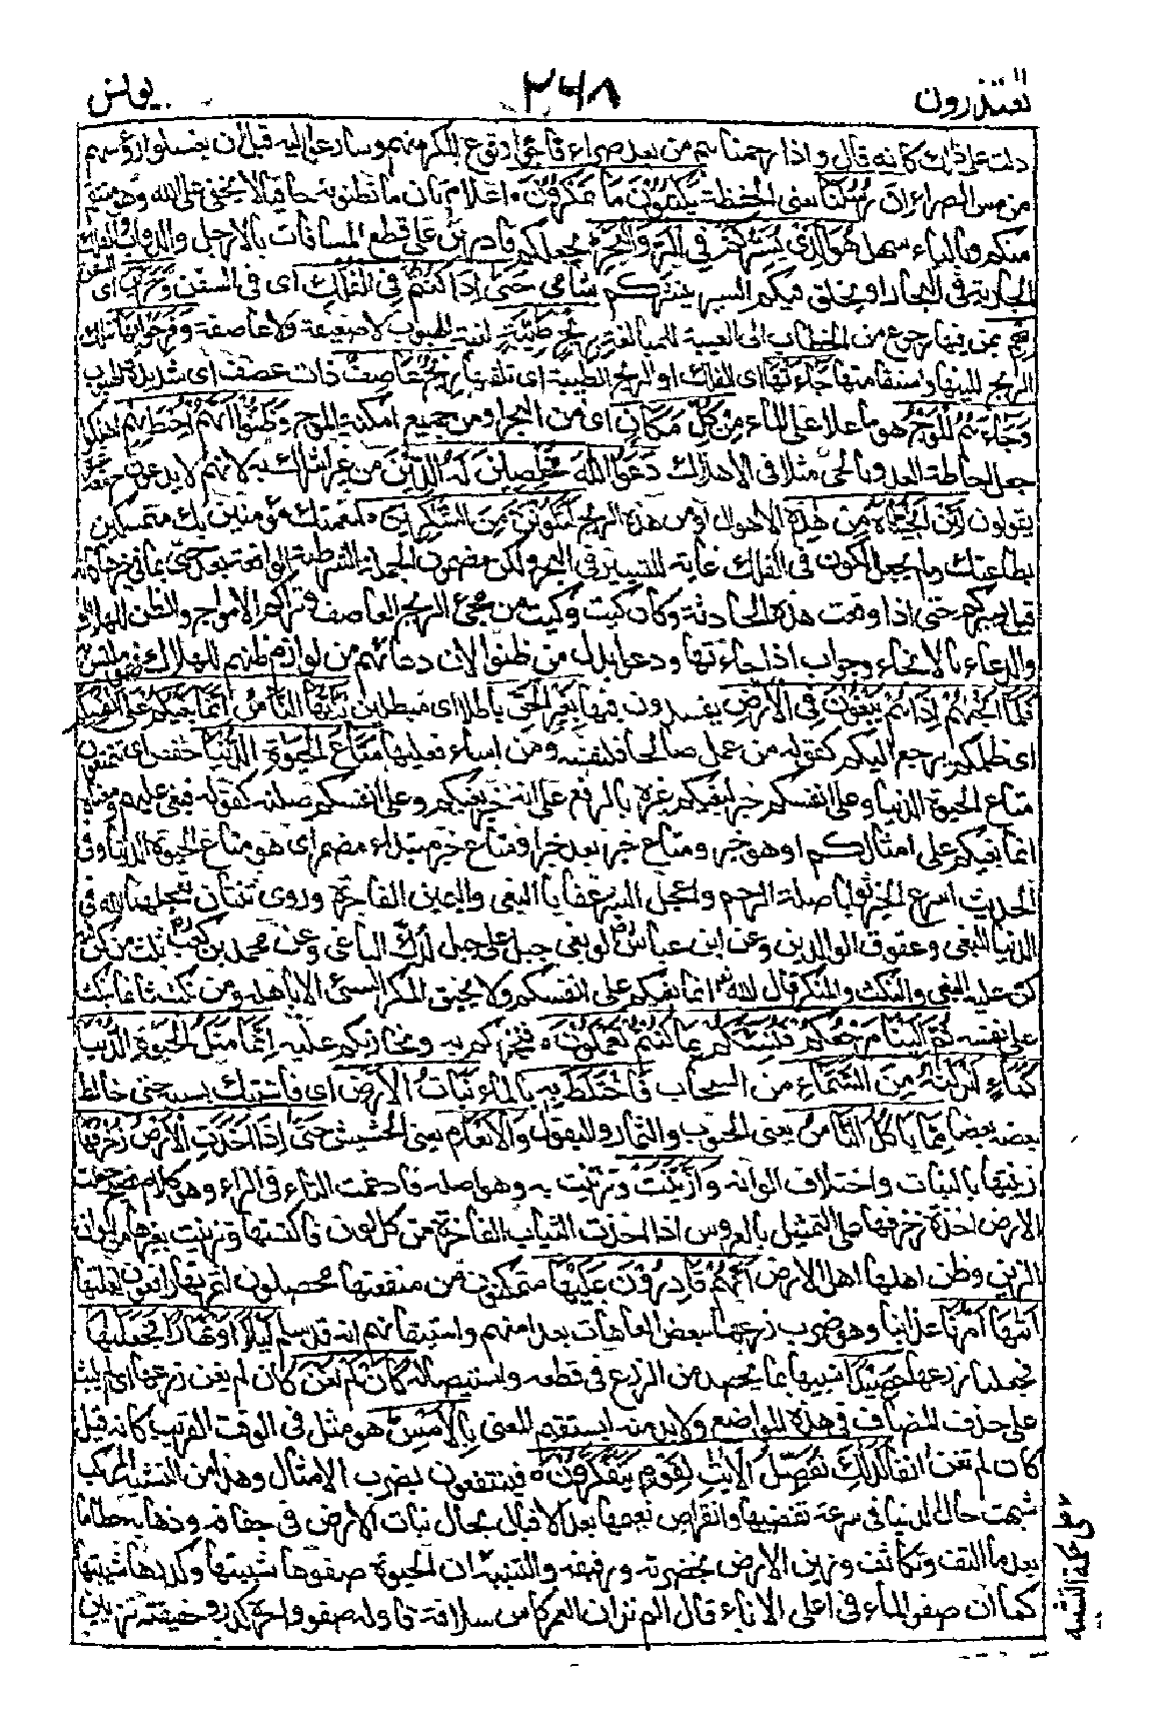 يعتذرون ٣٤٨ يونس
دلت على ذلك كانه قال واذا رحمناهم من بعد ضراء فاجؤا وقوع المكر منهم وسارعوا اليه قبل ان يغسلوا رؤسهم
من مس الضراء ان رُسُلَنَا يعنى الحفظة يَكْتُبُونَ مَا تَمْكُرُونَ ۰ اعلام بان ما تظنونه خافيا لا يخفى على الله وهو منتقم
منكم وبالياء سهل هُوَ الَّذِى يُسَيِّرُكُمْ فِى الْبَرِّ وَالْبَحْرِ يجعلكم قادرين على قطع المسافات بالارجل والدواب والفلك
الجارية فى البحار او يخلق فيكم السير ينشركم شامى حَتّٰى اِذَا كُنْتُمْ فِى الْفُلْكِ اى فى السفن وَجَرَيْنَ اى السفن
بِهِمْ بمن فيها رجوع من الخطاب الى الغيبة للمبالغة بِرِيْحٍ طَيِّبَةٍ لينة الهبوب لا ضعيفة ولا عاصفة وَفَرِحُوْا بِهَا بتلك
الريح للينها واستقامتها جَاءَتْهَا اى الفلك او الريح الطيبة اى تلقتها رِيْحٌ عَاصِفٌ ذات عصف اى شديدة الهبوب
وَجَاءَهُمُ الْمَوْجُ هو ما علا على الماء مِنْ كُلِّ مَكَانٍ اى من البحر او من جميع امكنة الموج وَظَنُّوْا اَنَّهُمْ اُحِيْطَ بِهِمْ اهلكوا
جعل احاطة العدو بالحى مثلا فى الاهلاك دَعَوُا اللّٰهَ مُخْلِصِيْنَ لَهُ الدِّيْنَ من غير اشراك به لانهم لا يدعون ح معه غيره
يقولون لَئِنْ اَنْجَيْتَنَا مِنْ هٰذِهِ الاهوال او من هذه الريح لَنَكُوْنَنَّ مِنَ الشّٰكِرِيْنَ ۰ لنعمتك مؤمنين بك متمسكين
بطاعتك ولم يجعل الكون فى الفلك غاية للتسيير فى البحر ولكن مضمون الجملة الشرطية الواقعة بعد حتى بما فى حيزها كانه
قيل يسيركم حتى اذا وقعت هذه الحادثة وكان كيت وكيت من مجئ الريح العاصفة وتراكم الامواج والظن للهلاك
والدعاء بالانجاء وجواب اذا جاءتها ودعوا بدل من ظنوا لان دعائهم من لوازم ظنهم للهلاك فهو ملتبس به
فَلَمَّا اَنْجٰهُمْ اِذَا هُمْ يَبْغُوْنَ فِى الْاَرْضِ يفسدون فيها بِغَيْرِ الْحَقِّ باطلا اى مبطلين يٰاَيُّهَا النَّاسُ اِنَّمَا بَغْيُكُمْ عَلٰى اَنْفُسِكُمْ
اى ظلمكم يرجع اليكم كقوله من عمل صالحا فلنفسه ومن اساء فعليها مَتَاعَ الْحَيٰوةِ الدُّنْيَا حفص اى تتمتعون
متاع الحيوة الدنيا وعلى انفسكم خبر لبغيكم غيره بالرفع على انه خبر بغيكم وعلى انفسكم صلته كقوله فبغى عليهم ومعناه
انما بغيكم على امثالكم او هو خبر ومتاع خبر بعد خبر او متاع خبر مبتداء مضمر اى هو متاع الحيوة الدنيا وفى
الحديث اسرع الخير ثوابا صلة الرحم واعجل الشر عقابا البغى واليمين الفاجرة وروى ثنتان يعجلهما الله فى
الدنيا البغى وعقوق الوالدين وعن ابن عباس رض لو بغى جبل على جبل لدك الباغى وعن محمد بن كعب رض ثلث من كن فيه
كن عليه البغى والنكث والمكر قال الله تعالى انما بغيكم على انفسكم ولا يحيق المكر السئ الا باهله ومن نكث فانما ينكث
على نفسه ثُمَّ اِلَيْنَا مَرْجِعُكُمْ فَنُنَبِّئُكُمْ بِمَا كُنْتُمْ تَعْمَلُوْنَ ۰ فنخبركم به ونجازيكم عليه اِنَّمَا مَثَلُ الْحَيٰوةِ الدُّنْيَا
كَمَاءٍ اَنْزَلْنٰهُ مِنَ السَّمَاءِ من السحاب فَاخْتَلَطَ بِهِ بالماء نَبَاتُ الْاَرْضِ اى فاشتبك بسببه حتى خالط
بعضه بعضا مِمَّا يَاْكُلُ النَّاسُ يعنى الحبوب والثمار والبقول وَالْاَنْعَامُ يعنى الحشيش حَتّٰى اِذَا اَخَذَتِ الْاَرْضُ زُخْرُفَهَا
زينتها بالنبات واختلاف الوانه وَازَّيَّنَتْ وتزينت به وهو اصله فادغمت التاء فى الزاء وهو كلام فصيح جعلت
الارض اخذة زخرفها على التمثيل بالعروس اذا اخذت الثياب الفاخرة من كل لون فاكتستها وتزينت بغيرها من الوان
الزين وَظَنَّ اَهْلُهَا اهل الارض اَنَّهُمْ قٰدِرُوْنَ عَلَيْهَا متمكنون من منفعتها محصلون لثمرتها رافعون لغلتها
اَتٰهَا اَمْرُنَا عذابنا وهو ضرب زرعها ببعض العاهات بعد امنهم واستيقانهم انه قد سلم لَيْلًا اَوْ نَهَارًا فَجَعَلْنٰهَا
فجعلنا زرعها حَصِيْدًا شبيها بما يحصد من الزرع فى قطعه واستيصاله كَاَنْ لَمْ تَغْنَ كان لم يغن زرعها اى لم يلبث
على حذف المضاف فى هذه المواضع ولا بد منه ليستقيم المعنى بِالْاَمْسِ هو مثل فى الوقت القريب كانه قيل
كان لم تغن انفا كَذٰلِكَ نُفَصِّلُ الْاٰيٰتِ لِقَوْمٍ يَتَفَكَّرُوْنَ ۰ فينتفعون بضرب الامثال وهذا من التشبيه المركب
شبهت حال الدنيا فى سرعة تقضيها وانقراض نعيمها بعد الاقبال بحال نبات الارض فى جفافه وذهابه حطاما
بعد ما التف وتكاثف وزين الارض بخضرته ورفيفه والتنبيه ان الحيوة صفوها شبيبتها وكدرها شيبتها
كما ان صفو الماء فى اعلى الاناء قال الم تر ان العمر كاس سلافة فاوله صفو واخره كدر وحقيقته تزيين
على حكمة التشبيه